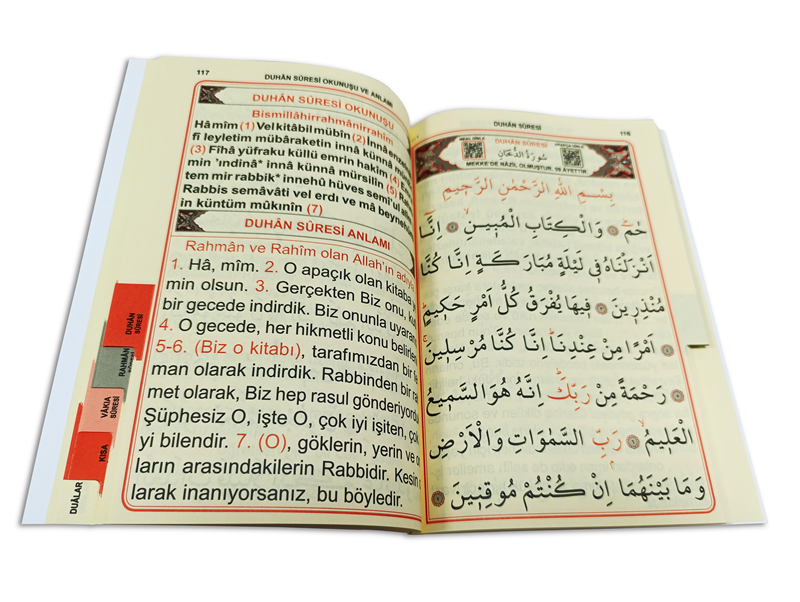 117
DUHÂN SÛRESİ OKUNUŞU VE ANLAMI
DUHÂN SÛRESİ OKUNUŞU
Bismillâhirrahmânirrahîm
Hâ mîm (1) Vel kitâbil mübîn (2) İnnâ enze
fî leyletim mübâraketin innâ künnâ mü
(3) Fîhâ yüfraku küllü emrin hakîm (4) Em
min 'ındinâ* innâ künnâ mürsilîn (5) Ra
tem mir rabbik* innehû hüves semî'ul alîm
Rabbis semâvâti vel erdı ve mâ beynehüm
in küntüm mûkınîn (7)
DUHÂN SÛRESİ ANLAMI
Rahmân ve Rahîm olan Allah'ın adıyla
1. Hâ, mîm. 2. O apaçık olan kitaba
min olsun. 3. Gerçekten Biz onu,
bir gecede indirdik. Biz onunla uyaran
4. O gecede, her hikmetli konu belirlen
5-6. (Biz o kitabı), tarafımızdan bir
man olarak indirdik. Rabbinden bir ra
met olarak, Biz hep rasul gönderiyord
Şüphesiz O, işte O, çok iyi işiten, ço
yi bilendir. 7. (O), göklerin, yerin ve o
ların arasındakilerin Rabbidir. Kesin
larak inanıyorsanız, bu böyledir.
DUHÂN SÛRESİ
RAHMÂN
VÂKIA SÛRESİ
KISA
DUÂLAR
DUHÂN SÛRESİ
116
DUHÂN SÛRESİ
سُورَةُ الدُّخَانِ
MEKKE'DE NÂZİL OLMUŞTUR, 59 ÂYETTİR.
بِسْمِ اللهِ الرَّحْمٰنِ الرَّحِيمِ
حٰمٓ ۞ وَالْكِتَابِ الْمُبِينِ ۞ اِنَّٓا
اَنْزَلْنَاهُ فِي لَيْلَةٍ مُبَارَكَةٍ اِنَّا كُنَّا
مُنْذِرِينَ ۞ فِيهَا يُفْرَقُ كُلُّ اَمْرٍ حَكِيمٍ
۞ اَمْرًا مِنْ عِنْدِنَا اِنَّا كُنَّا مُرْسِلِينَ
۞ رَحْمَةً مِنْ رَبِّكَ اِنَّهُ هُوَ السَّمِيعُ
الْعَلِيمُ ۞ رَبِّ السَّمٰوَاتِ وَالْاَرْضِ
وَمَا بَيْنَهُمَا اِنْ كُنْتُمْ مُوقِنِينَ ۞